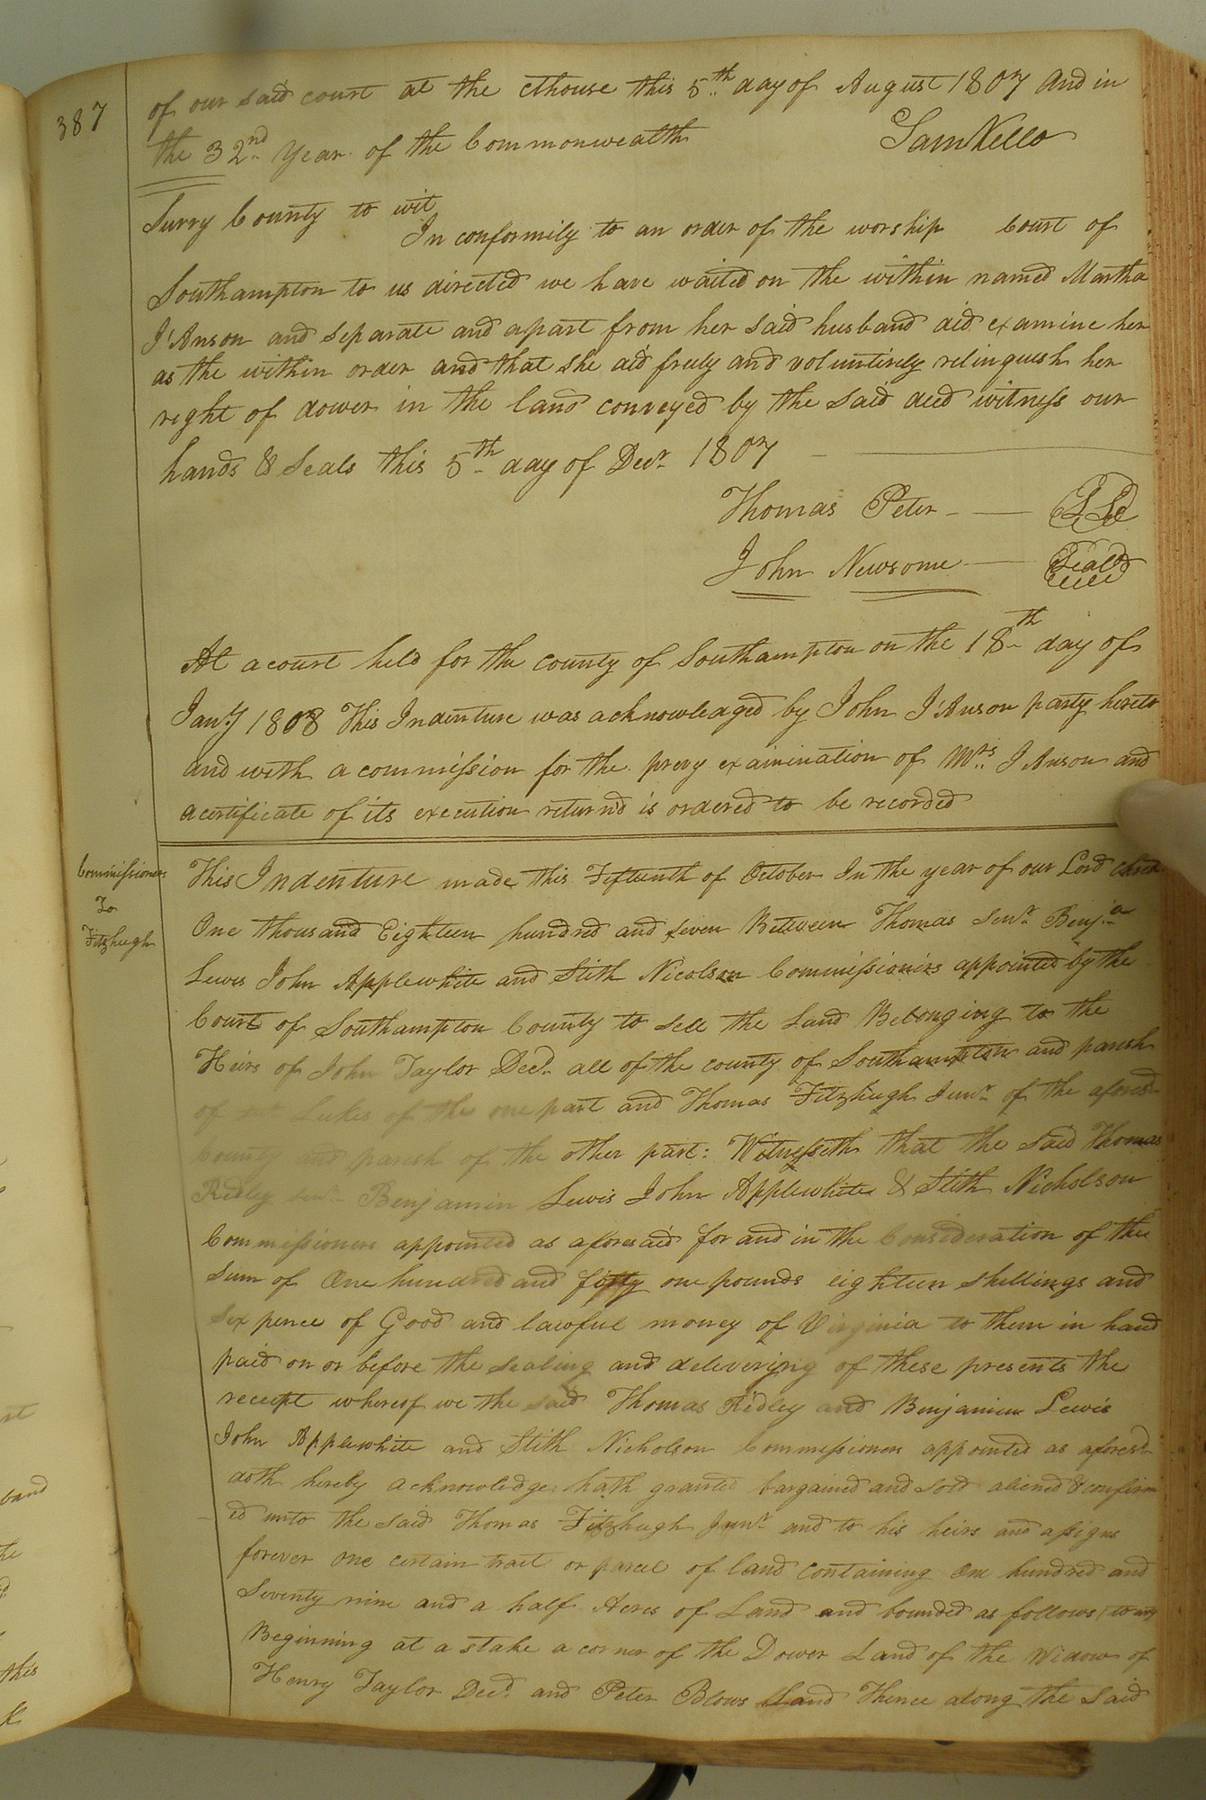 387
of our said court at the cthouse this 5th day of August 1807 And in
the 32nd Year of the Commonwealth
Sam Kello
Surry County to wit
In conformity to an order of the worship Court of
Southampton to us directed we have waited on the within named Martha
J'Anson and separate and apart from her said husband did examine her
as the within order and that she did freely and voluntirely relinquish her
right of dower in the land conveyed by the said deed witness our
hands & Seals this 5th day of Decr. 1807
Thomas Peter
John Newsome Seal
At a court held for the county of Southampton on the 18th day of
Jany 1808 This Indenture was acknowledged by John J'Anson party hereto
and with a commission for the prevy examination of Mrs. J Anson and
a certificate of its execution returnd is ordered to be recorded
Commissioners
To
Fitzhugh
This Indenture made this Fifteenth of October In the year of our Lord Christ
One thousand Eighteen hundred and seven Between Thomas Senr. Benja
Lewis John Applewhite and Stith Nicolson Commissioners appointed by the
Court of Southampton County to sell the Land Belonging to the
Heirs of John Taylor Decd. all of the county of Southampton and parish
of lukes of the one part and Thomas Fitzhugh Junr. of the aforesd
County and parish of the other part: Witnesseth that the said Thomas
Ridley senr. Benjamin Lewis John Applewhite & Stith Nicholson
Commissioners appointed as aforesaid for and in the Consideration of the
Sum of One hundred and fifty one pounds eighteen shillings and
six pence of Good and lawful money of Virginia to them in hand
paid on or before the sealing and delevering of these presents the
receipt whereof we the said Thomas Ridley and Benjamin Lewis
John Applewhite and Stith Nicholson Commissioners appointed as aforesd
doth hereby acknowledge hath granted bargained and sold aliened & confirm
ed unto the said Thomas Fitzhugh Junr. and to his heirs and assigns
forever one certain tract or parcel of land containing One hundred and
Seventy nine and a half Acres of Land and bounded as follows (to wit)
Beginning at a stake a corner of the Dower Land of the Widow of
Henry Taylor Decd. and Peter Blows Land Thence along the Said